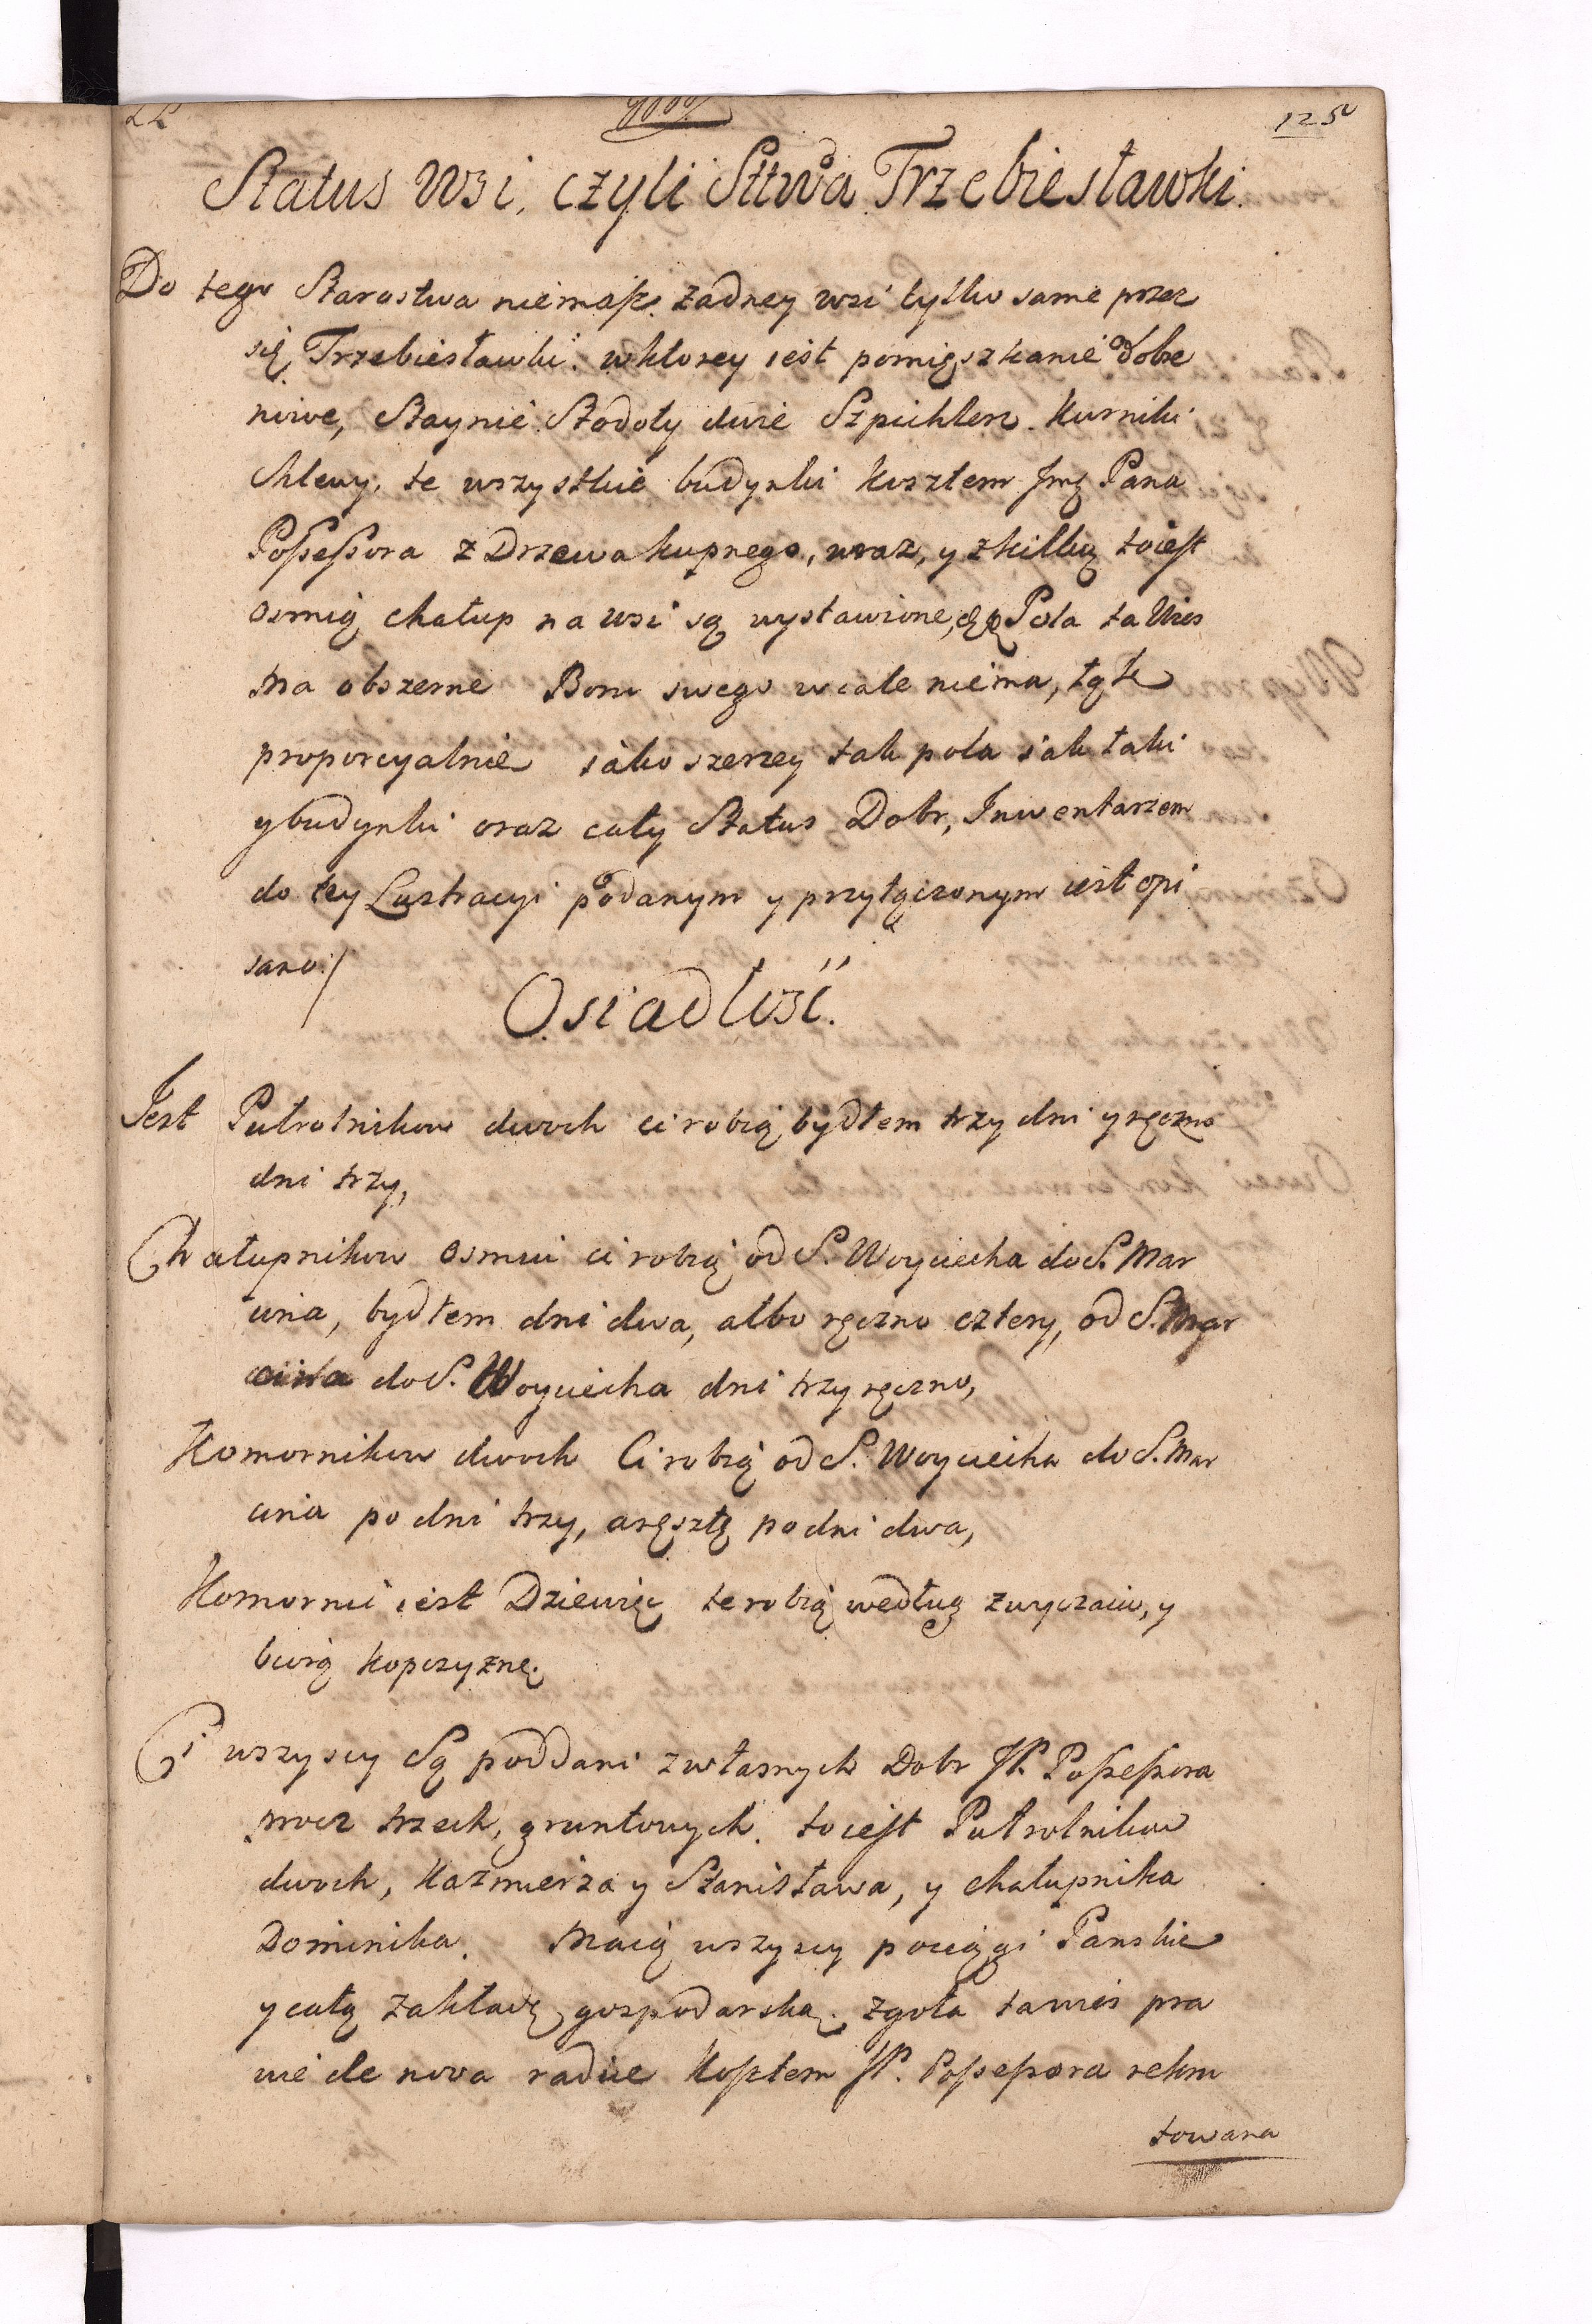 125
Status Wsi, czyli Sttwa Trzebiesławki.
Do tego Starostwa niemasz żadney wsi tylko same przez
się Trzebiesławki. wktorey iest pomięszkanie dobre
nowe, Staynie Stodoły dwie Szpichlerz. Kurniki
Chlewy, te wszystkie budynki kosztem Jmę Pana
Possessora z Drzewa kupnego, wraz, y zkilką toiest
osmią chałup na wsi są wystawione, Pola ta Wies
ma obszerne Boru swego wcale niema, Łąk
proporcyalnie iako szerzey tak pola iak łąki
y budynki oraz cały Status Dobr, Inwentarzem
do tey Lustracyi podanym y przyłączonym iest opi
sano:/
Osiadłość.
Jest Pułrolnikow dwoch ci robią bydłem trzy dni y ręczno
dni trzy,
Chałupnikow osmiu ci robią od S. Woyciecha do S. Mar
cina, bydłem dni dwa, albo ręczno cztery, od S. Mar
cina do S. Woyciecha dni trzy ręczno,
Komornikow dwoch Ci robią od S. Woyciecha do S. Mar
cina po dni trzy, aresztę po dni dwa,
Komornic iest Dziewięć te robią według zwyczaiu, y
biorą kopczyznę.
Ci wszyscy Są poddani zwłasnych Dobr JP. Possessora
procz trzech, gruntowych. toiest Pułrolnikow
dwoch, Kazmierza y Stanisława, y chałupnika
Dominika. Maią wszyscy pociągi Panskie
y całą Zakładę gospodarską. zgoła tawies pra
wie de nova radice Kosztem JP. Possessora rekru
towana